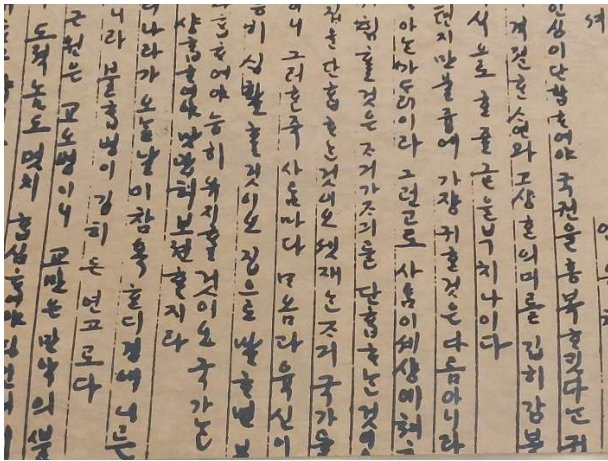 인심이단합ᄒᆞ여야 국권을 흥복ᄒᆞ겟다ᄂᆞᆫ 귀
격절ᄒᆞᆫᄉᆞ연과 고상ᄒᆞᆫ의미를 깁히 감복
식으로 ᄒᆞᆫ줄 글을부치나이다
텬지만물즁에 가장 귀ᄒᆞᆫ것은 다름아니라
아는가닭이라 그런고로 사ᄅᆞᆷ이세상에쳐ᄒᆞ
힘ᄒᆞᆯ것은 ᄌᆞ긔가ᄌᆞ긔를 단합ᄒᆞᄂᆞᆫ것이오
집을 단합ᄒᆞᄂᆞᆫ것이오 셋재ᄂᆞᆫᄌᆞ긔 국가를
니 그러ᄒᆞᆫ즉 사ᄅᆞᆷ마다 ᄆᆞᄋᆞᆷ과 육신이
히 ᄉᆡᆼ활ᄒᆞᆯ것이오 집으로 말ᄒᆞ면 부
합ᄒᆞ여야 능히 유지ᄒᆞᆯ것이오 국가ᄂᆞᆫ
샹합ᄒᆞ여야 맛당히보젼ᄒᆞᆯ지라
리나라가 오ᄂᆞᆯ날이참혹ᄒᆞᆫ디경에 니른
니라 불합병이 깁히 든 연고로다
근원은 교오병이니 교만은 만악의 뿌
도적놈도 몃치 합심ᄒᆞ여야